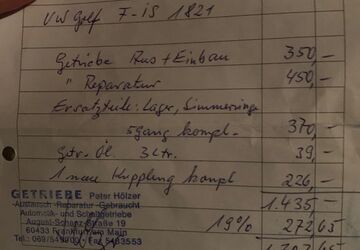 VW Golf F-iS 1821
Getriebe Aus + Einbau 350,-
" Reparatur 450,-
Ersatzteile: Lager, Simmeringe
5gang kompl. 370,-
Getr. Öl. 3 Ltr. 39,-
1 neue Kupplung kompl 226,-
1.435,-
19% 272,65
GETRIEBE Peter Hölzer
Austausch - Reparatur - Gebraucht
Automatik- und Schaltgetriebe
August-Schanz-Straße 19
60433 Frankfurt am Main
Tel.: 069/5